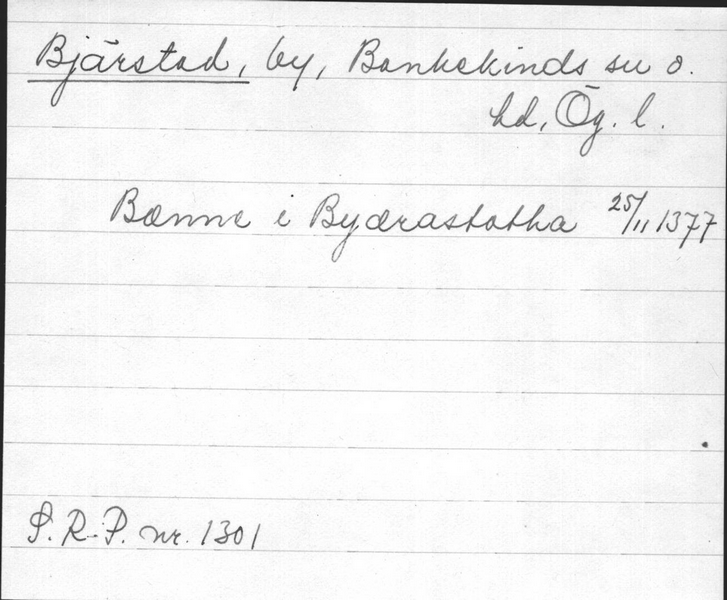 Bjärstad, by, Bankekinds sn o.
hd, Ög. l.
Bænne i Byærastatha 25/11 1377
S.R.P. nr. 1301